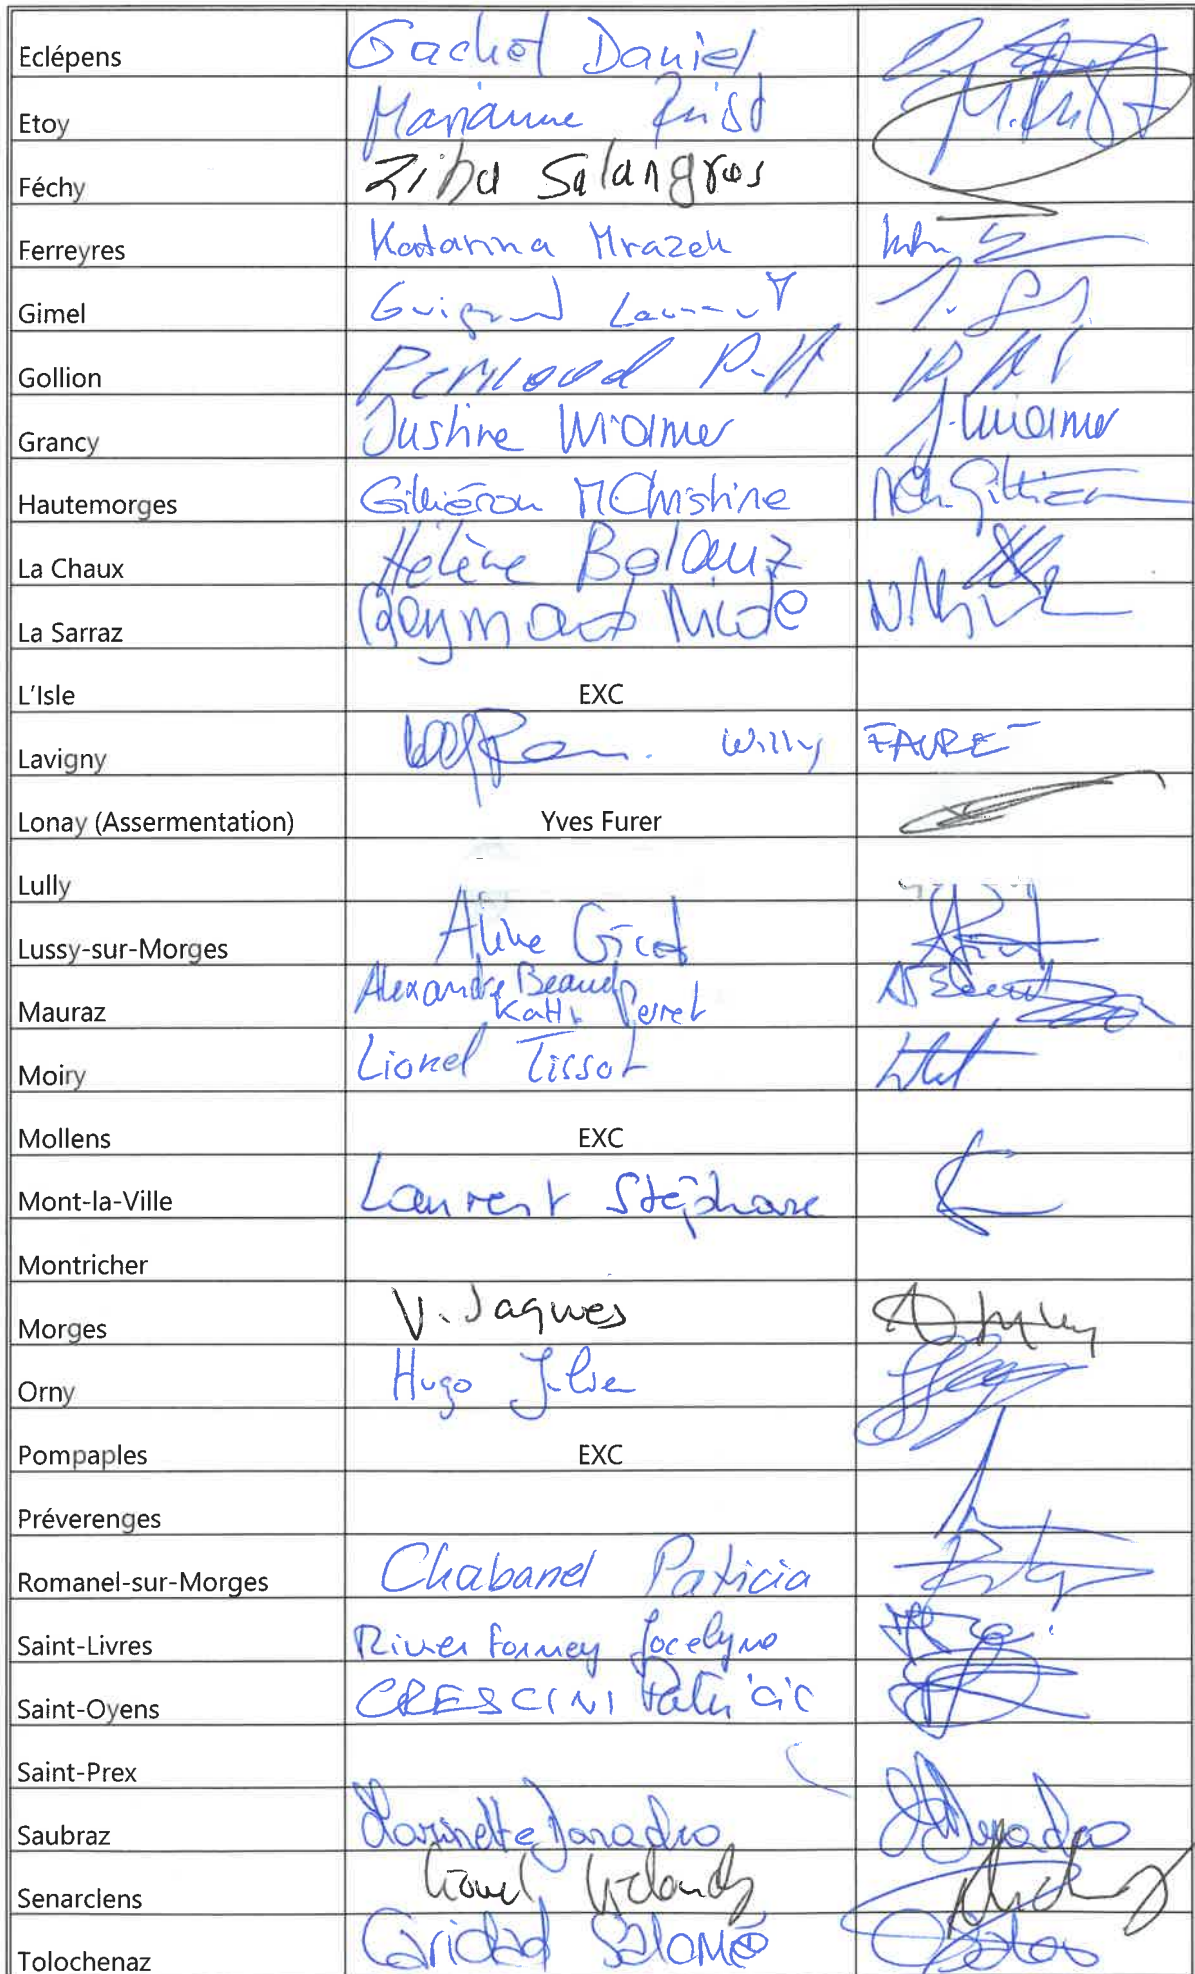 Eclépens Gachet Daniel
Etoy Marianne
Féchy Ziba Salangros
Ferreyres Katarina Mrazek
Gimel Guignard Laurent
Gollion P-H
Grancy Justine Widmer J. Widmer
Hautemorges Gilliéron M Christine
La Chaux Hélène Bolauz
La Sarraz Reymond Nicole
L'Isle EXC
Lavigny Willy FAVRE
Lonay (Assermentation) Yves Furer
Lully
Lussy-sur-Morges Aline
Mauraz Alexandre
Perret
Moiry Lionel Tissot
Mollens EXC
Mont-la-Ville Laurent Stéphane
Montricher
Morges V. Jaques
Orny Hugo
Pompaples EXC
Préverenges
Romanel-sur-Morges Chabanel Patricia
Saint-Livres Forney Jocelyne
Saint-Oyens CRESCINI
Saint-Prex
Saubraz
Senarclens Lionel
Tolochenaz Caridad Salomé